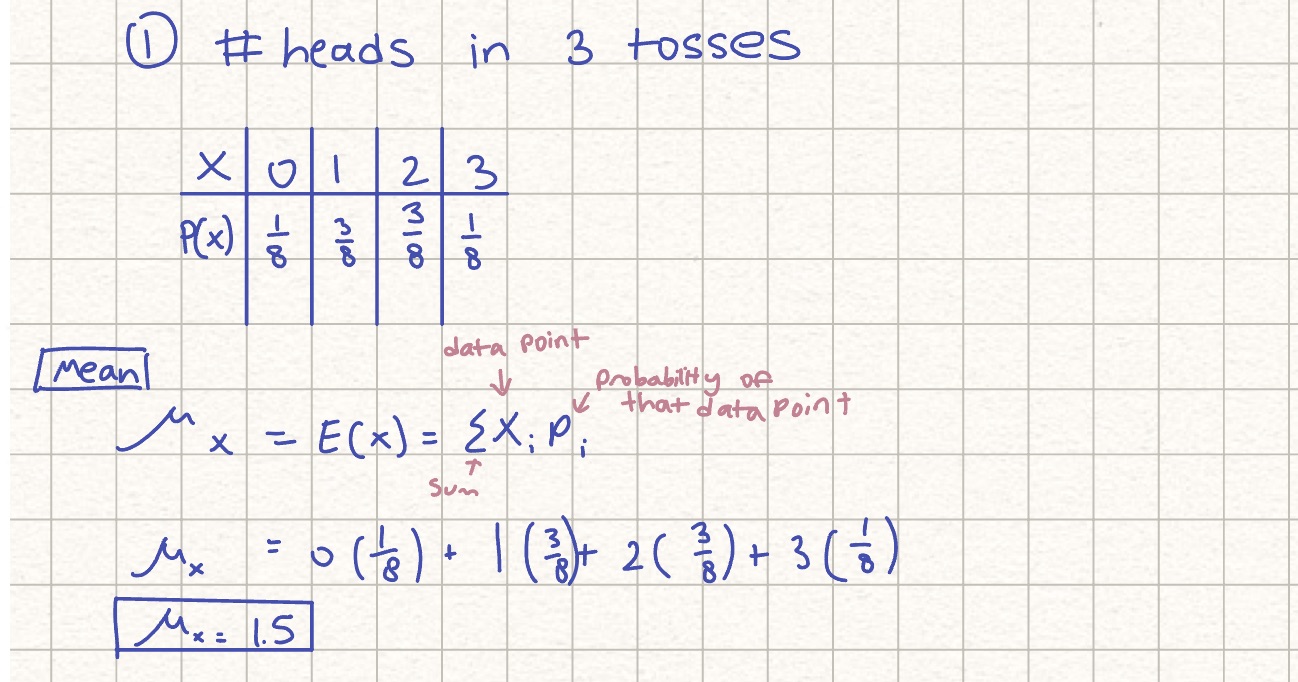 ① # heads in 3 tosses
X 0 1 2 3
P(x) 1/8 3/8 3/8 1/8
data point
Mean
probability of
that data point
μx = E(x) = ΣXipi
Sum
μx = 0(1/8) + 1(3/8) + 2(3/8) + 3(1/8)
μx = 1.5